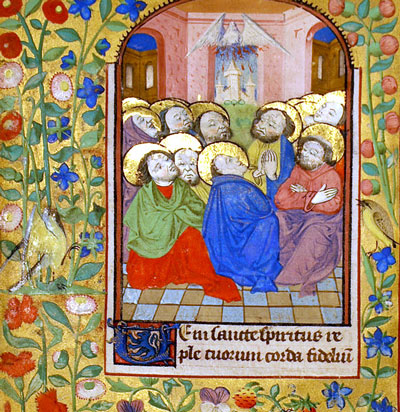 VEni sancte spiritus re
ple tuorum corda fideliū